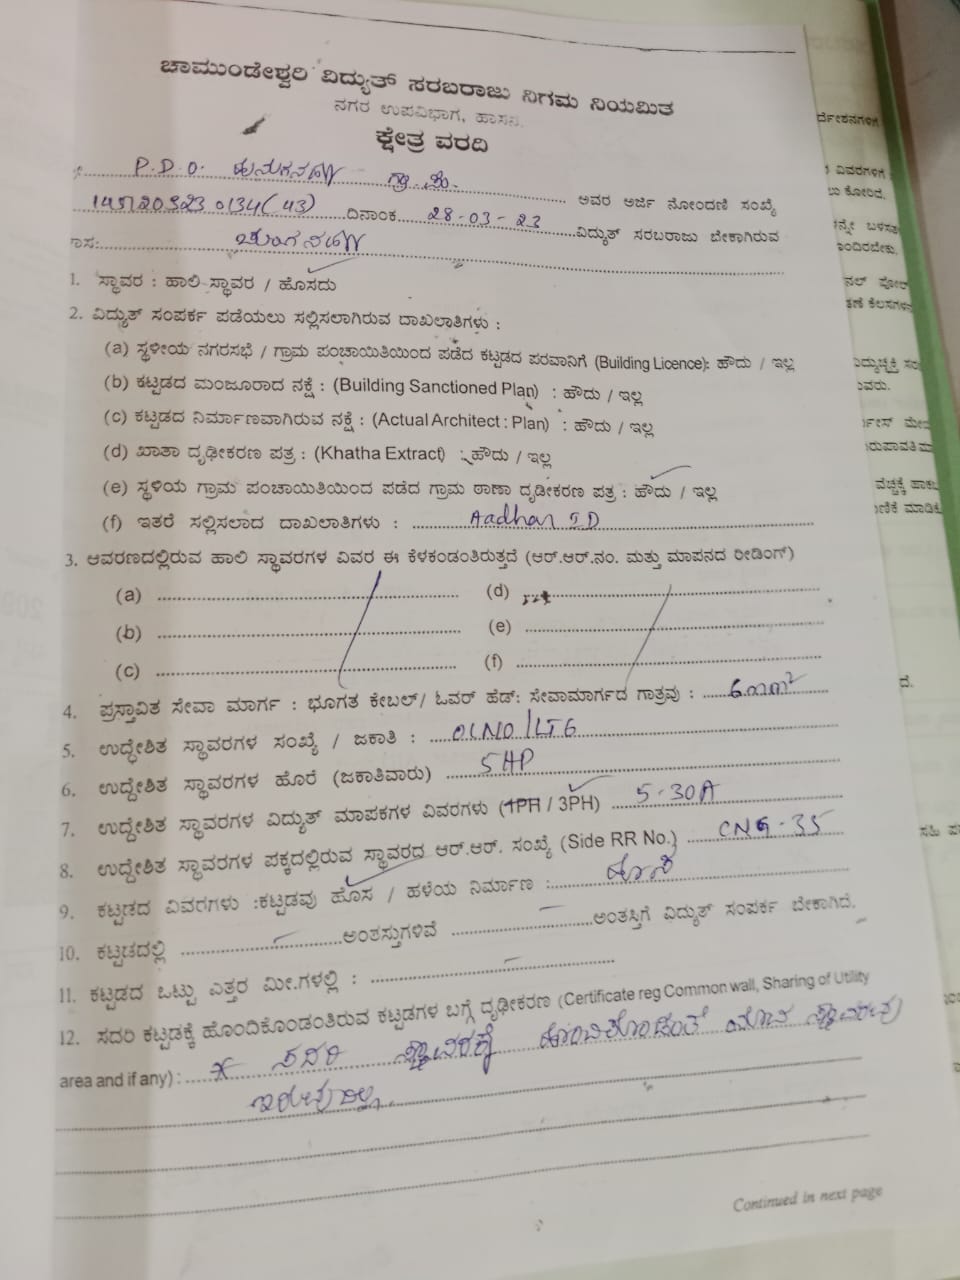 ಚಾಮುಂಡೇಶ್ವರಿ ವಿದ್ಯುತ್ ಸರಬರಾಜು ನಿಗಮ ನಿಯಮಿತ
ನಗರ ಉಪವಿಭಾಗ, ಹಾಸನ.
ಕ್ಷೇತ್ರ ವರದಿ
P.D.O. ಗ್ರಾ.ಪಂ. ಅವರ ಅರ್ಜಿ ನೋಂದಣಿ ಸಂಖ್ಯೆ
145120323 0134(43) ದಿನಾಂಕ 28-03-23 ವಿದ್ಯುತ್ ಸರಬರಾಜು ಬೇಕಾಗಿರುವ
1. ಸ್ಥಾವರ : ಹಾಲಿ ಸ್ಥಾವರ / ಹೊಸದು
2. ವಿದ್ಯುತ್ ಸಂಪರ್ಕ ಪಡೆಯಲು ಸಲ್ಲಿಸಲಾಗಿರುವ ದಾಖಲಾತಿಗಳು :
(a) ಸ್ಥಳೀಯ ನಗರಸಭೆ / ಗ್ರಾಮ ಪಂಚಾಯಿತಿಯಿಂದ ಪಡೆದ ಕಟ್ಟಡದ ಪರವಾನಿಗೆ (Building Licence): ಹೌದು / ಇಲ್ಲ
(b) ಕಟ್ಟಡದ ಮಂಜೂರಾದ ನಕ್ಷೆ : (Building Sanctioned Plan) : ಹೌದು / ಇಲ್ಲ
(c) ಕಟ್ಟಡದ ನಿರ್ಮಾಣವಾಗಿರುವ ನಕ್ಷೆ : (Actual Architect : Plan) : ಹೌದು / ಇಲ್ಲ
(d) ಖಾತಾ ದೃಢೀಕರಣ ಪತ್ರ : (Khatha Extract) : ಹೌದು / ಇಲ್ಲ
(e) ಸ್ಥಳಿಯ ಗ್ರಾಮ ಪಂಚಾಯಿತಿಯಿಂದ ಪಡೆದ ಗ್ರಾಮ ಠಾಣಾ ದೃಡೀಕರಣ ಪತ್ರ : ಹೌದು / ಇಲ್ಲ
(f) ಇತರೆ ಸಲ್ಲಿಸಲಾದ ದಾಖಲಾತಿಗಳು : Aadhar ID
3. ಆವರಣದಲ್ಲಿರುವ ಹಾಲಿ ಸ್ಥಾವರಗಳ ವಿವರ ಈ ಕೆಳಕಂಡಂತಿರುತ್ತದೆ (ಆರ್.ಆರ್.ನಂ. ಮತ್ತು ಮಾಪನದ ರೀಡಿಂಗ್)
(a) (d)
(b) (e)
(c) (f)
4. ಪ್ರಸ್ತಾವಿತ ಸೇವಾ ಮಾರ್ಗ : ಭೂಗತ ಕೇಬಲ್/ ಓವರ್ ಹೆಡ್: ಸೇವಾಮಾರ್ಗದ ಗಾತ್ರವು : 6mm²
5. ಉದ್ಧೇಶಿತ ಸ್ಥಾವರಗಳ ಸಂಖ್ಯೆ / ಜಕಾತಿ : 01NO/LT6
6. ಉದ್ದೇಶಿತ ಸ್ಥಾವರಗಳ ಹೊರೆ (ಜಕಾತಿವಾರು) 5HP
7. ಉದ್ದೇಶಿತ ಸ್ಥಾವರಗಳ ವಿದ್ಯುತ್ ಮಾಪಕಗಳ ವಿವರಗಳು (1PH / 3PH) 5-30A
8. ಉದ್ದೇಶಿತ ಸ್ಥಾವರಗಳ ಪಕ್ಕದಲ್ಲಿರುವ ಸ್ಥಾವರದ ಆರ್.ಆರ್. ಸಂಖ್ಯೆ (Side RR No.) CNG-35
9. ಕಟ್ಟಡದ ವಿವರಗಳು :ಕಟ್ಟಡವು ಹೊಸ / ಹಳೆಯ ನಿರ್ಮಾಣ :
10. ಕಟ್ಟಡದಲ್ಲಿ ಅಂತಸ್ತುಗಳಿವೆ ಅಂತಸ್ತಿಗೆ ವಿದ್ಯುತ್ ಸಂಪರ್ಕ ಬೇಕಾಗಿದೆ.
11. ಕಟ್ಟಡದ ಒಟ್ಟು ಎತ್ತರ ಮೀ.ಗಳಲ್ಲಿ :
12. ಸದರಿ ಕಟ್ಟಡಕ್ಕೆ ಹೊಂದಿಕೊಂಡಂತಿರುವ ಕಟ್ಟಡಗಳ ಬಗ್ಗೆ ದೃಢೀಕರಣ (Certificate reg Common wall, Sharing of Utility
area and if any) : ಸದರಿ ಸ್ಥಾವರಕ್ಕೆ ಹೊಂದಿಕೊಂಡಂತೆ ಯಾವ ಸ್ಥಾವರವು
ಇರುವುದಿಲ್ಲ.
Continued in next page